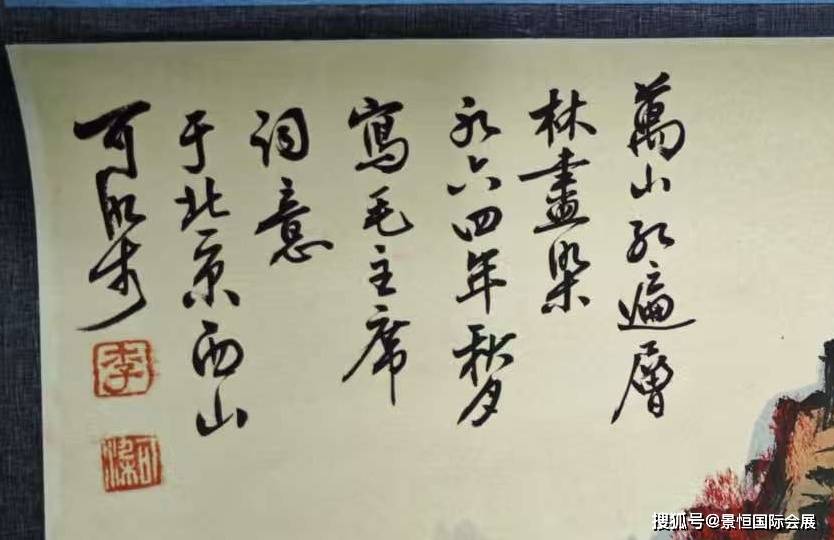 萬山紅遍層
林盡染
一九六四年秋月
寫毛主席
詞意
于北京西山
可染
李
可染
搜狐号@景恒国际会展